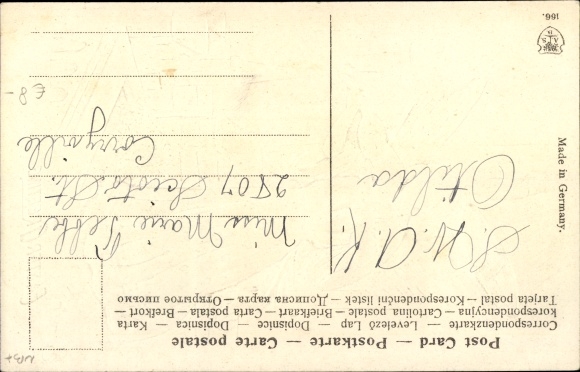 Post Card — Postkarte — Carte postale
Correspondenzkarte — Levelező Lap — Dopisnice — Dopisnica — Karta
korespondencyjna — Cartolina postale — Briefkaart — Carta postala — Brefkort —
Tarjeta postal — Korespondenční lístek — Дописна карта — Открытое письмо
S. W. A. K.
Otilda
Miss Marie
2807 Scioto St.
Corryville
Made in Germany.
166.
€8-